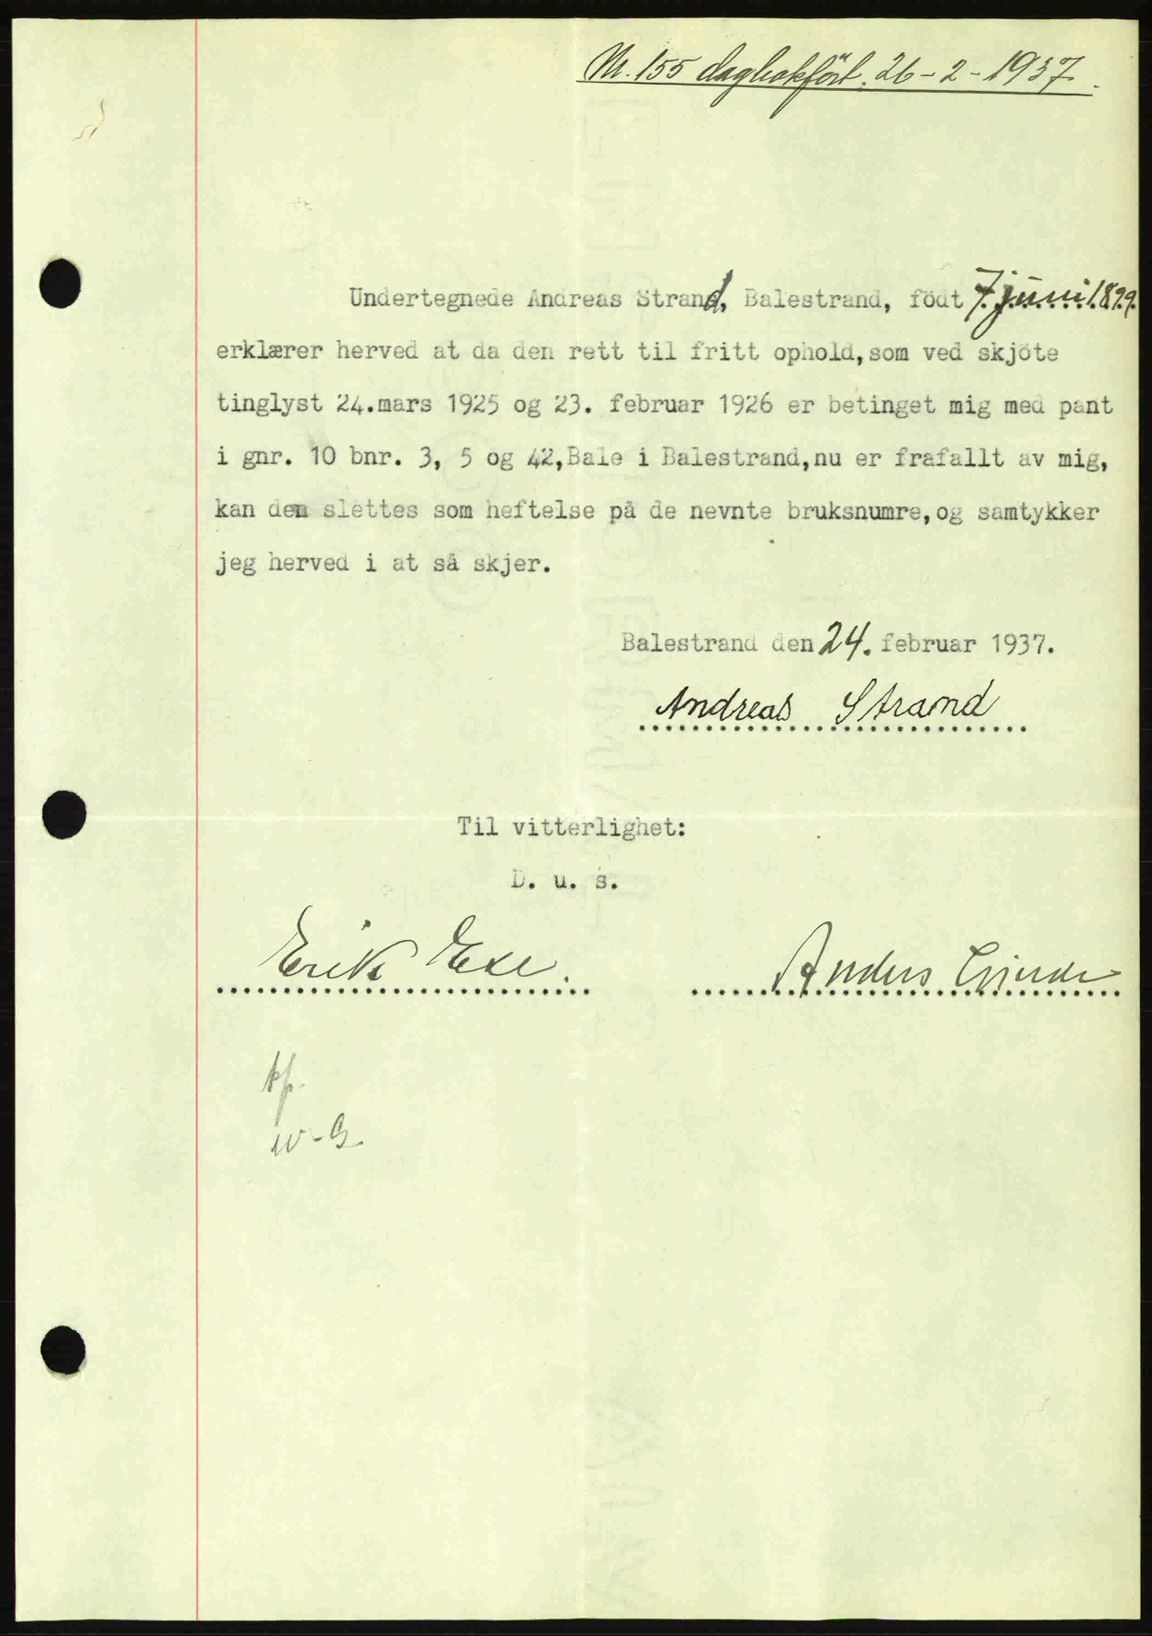 Nr. 155 dagbokført. 26-2-1937.
Undertegnede Andreas Strand, Balestrand, födt 7 juni 1899.
erklærer herved at da den rett til fritt ophold, som ved skjöte
tinglyst 24.mars 1925 og 23. februar 1926 er betinget mig med pant
i gnr. 10 bnr. 3, 5 og 42,Bale i Balestrand,nu er frafallt av mig,
kan den slettes som heftelse på de nevnte bruksnumre,og samtykker
jeg herved i at så skjer.
Balestrand den 24. februar 1937.
Andreas Strand
Til vitterlighet:
D. u. s.
Erik Exe. Anders Grinde